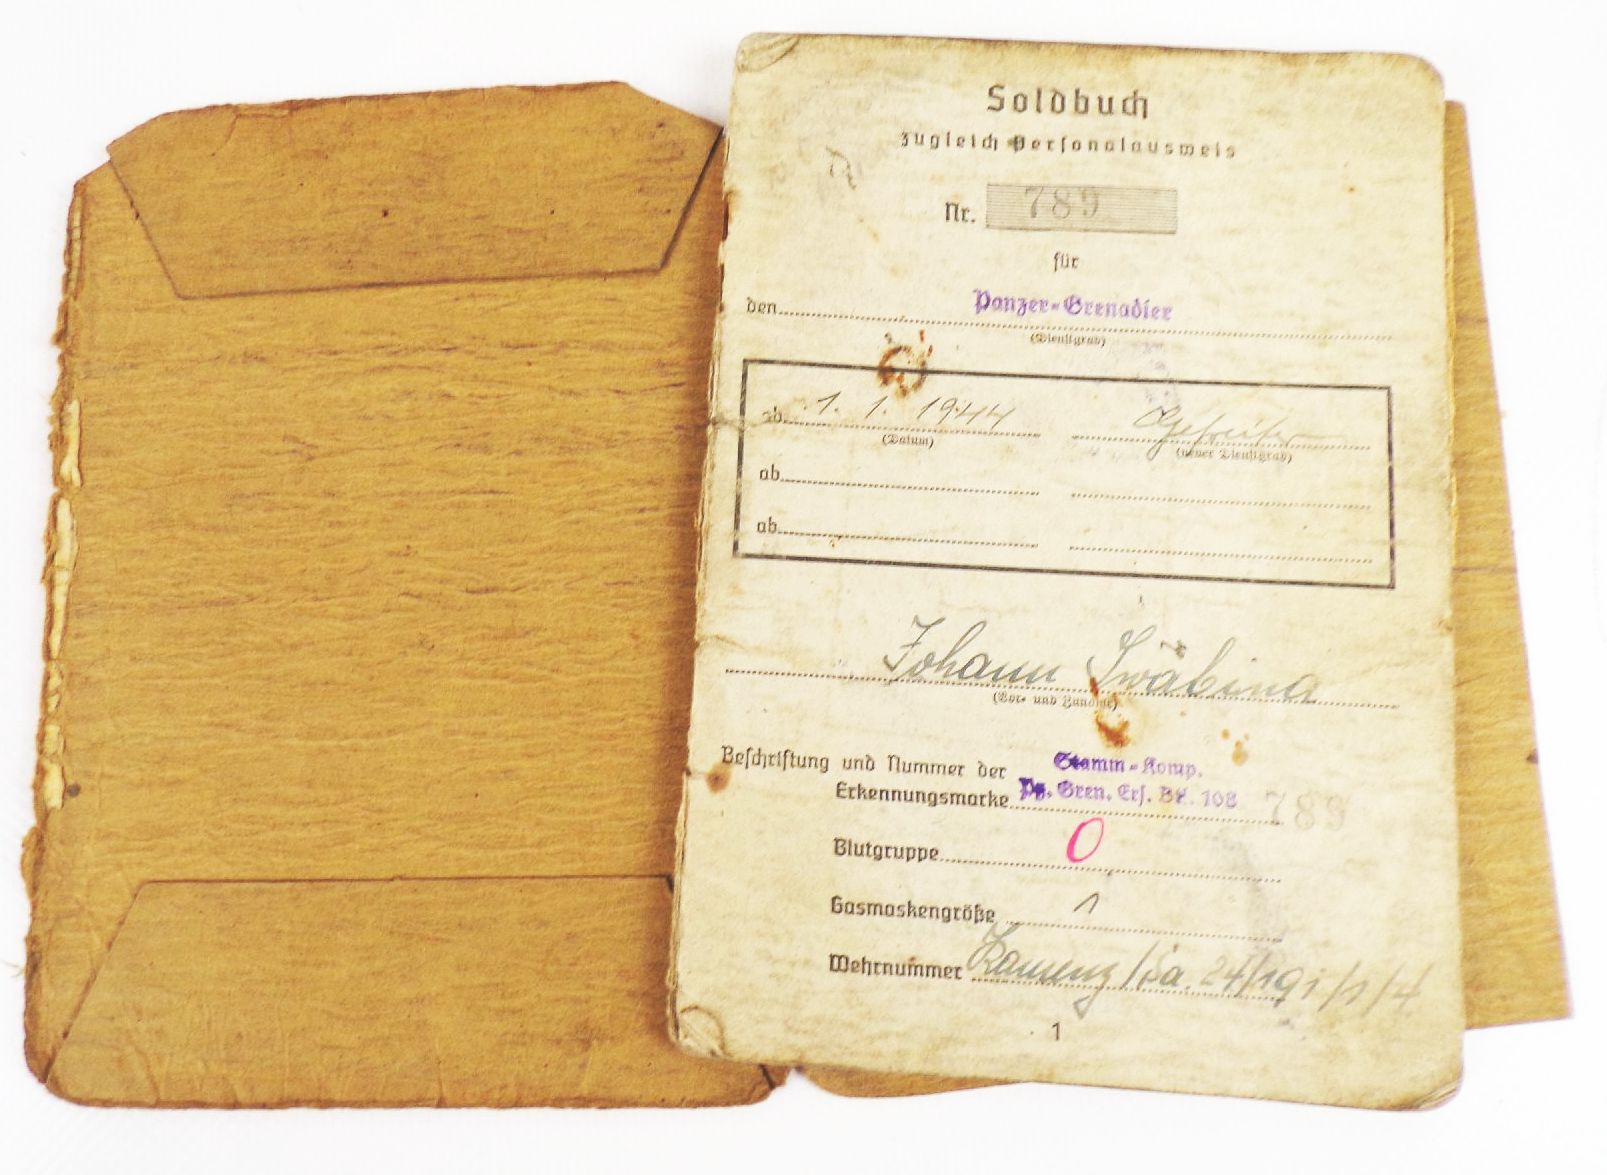 Soldbuch
zugleich Personalausweis
Nr. 789
für
den Panzer-Grenadier
(Dienstgrad)
ab 1. 1. 1944 Gefreiter
(Datum) (neuer Dienstgrad)
ab
ab
Johann Swäbina
(Vor- und Zuname)
Beschriftung und Nummer der Stamm-Komp.
Erkennungsmarke Pz. Gren. Ers. Btl. 108 789
Blutgruppe 0
Gasmaskengröße 1
Wehrnummer Kamenz/Sa. 24/191/1/4
1